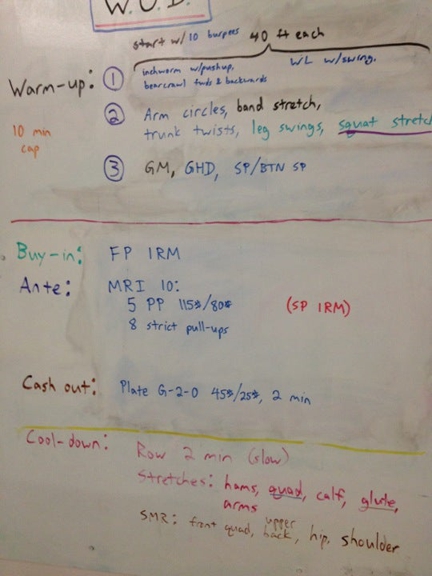 W.O.D.
start w/ 10 burpees 40 ft each
Warm-up: ① inchworm w/pushup, WL w/swing.
bearcrawl fwds & backwards
10 min cap
② Arm circles, band stretch,
trunk twists, leg swings, squat stretch
③ GM, GHD, SP/BTN SP
Buy-in: FP 1RM
Ante: MRI 10:
5 PP 115#/80# (SP 1RM)
8 strict pull-ups
Cash out: Plate G-2-O 45#/25#, 2 min
Cool-down: Row 2 min (slow)
Stretches: hams, quad, calf, glute,
arms
SMR: front quad, upper back, hip, shoulder